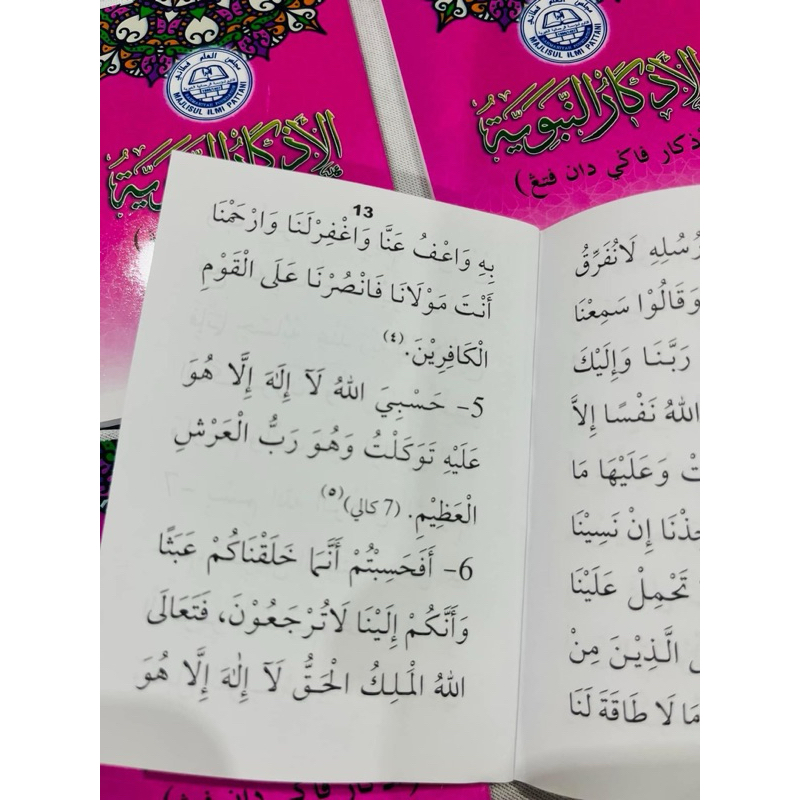 MAJLISUL ILMI PATTANI
MAJLISUL ILMI PATTANI
الأذكار النبوية
ذكار فاكي دان فتڠ)
13
بِهِ وَاعْفُ عَنَّا وَاغْفِرْلَنَا وَارْحَمْنَا
أَنْتَ مَوْلَانَا فَانْصُرْنَا عَلَى الْقَوْمِ
الْكَافِرِيْنَ. (٤)
5- حَسْبِيَ اللهُ لَآ إِلَهَ إِلَّا هُوَ
عَلَيْهِ تَوَكَلْتُ وَهُوَ رَبُّ الْعَرْشِ
الْعَظِيْمِ. (7 كالي)(٥)
6- أَفَحَسِبْتُمْ أَنَّمَا خَلَقْنَاكُمْ عَبَثًا
وَأَنَّكُمْ إِلَيْنَا لَاتُرْجَعُوْنَ، فَتَعَالَى
اللهُ الْمَلِكُ الْحَقُّ لَآ إِلٰهَ إِلَّا هُوَ
رُسُلِهِ لَانُفَرِّقُ
وَقَالُوْا سَمِعْنَا
رَبَّنَا وَإِلَيْكَ
اللهُ نَفْسًا إِلاَّ
وَعَلَيْهَا مَا
إِنْ نَسِيْنَا
تَحْمِلْ عَلَيْنَا
الَّذِيْنَ مِنْ
مَا لَا طَاقَةَ لَنَا